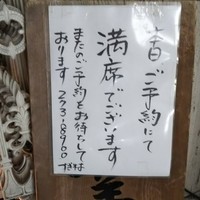 本日ご予約にて
満席でございます
またのご予約をお待ちして
おります 273-8900